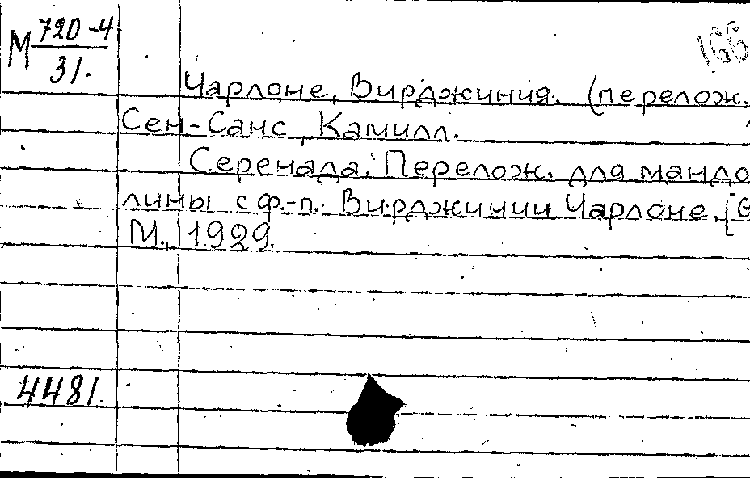 М 720-4
31.
166
Чарлоне, Вирджиния. (перелож.
Сен-Санс, Камилл.
Серенада. Перелож. для мандо
лины с ф.-п. Вирджинии Чарлоне. [
М., 1929.
4481.